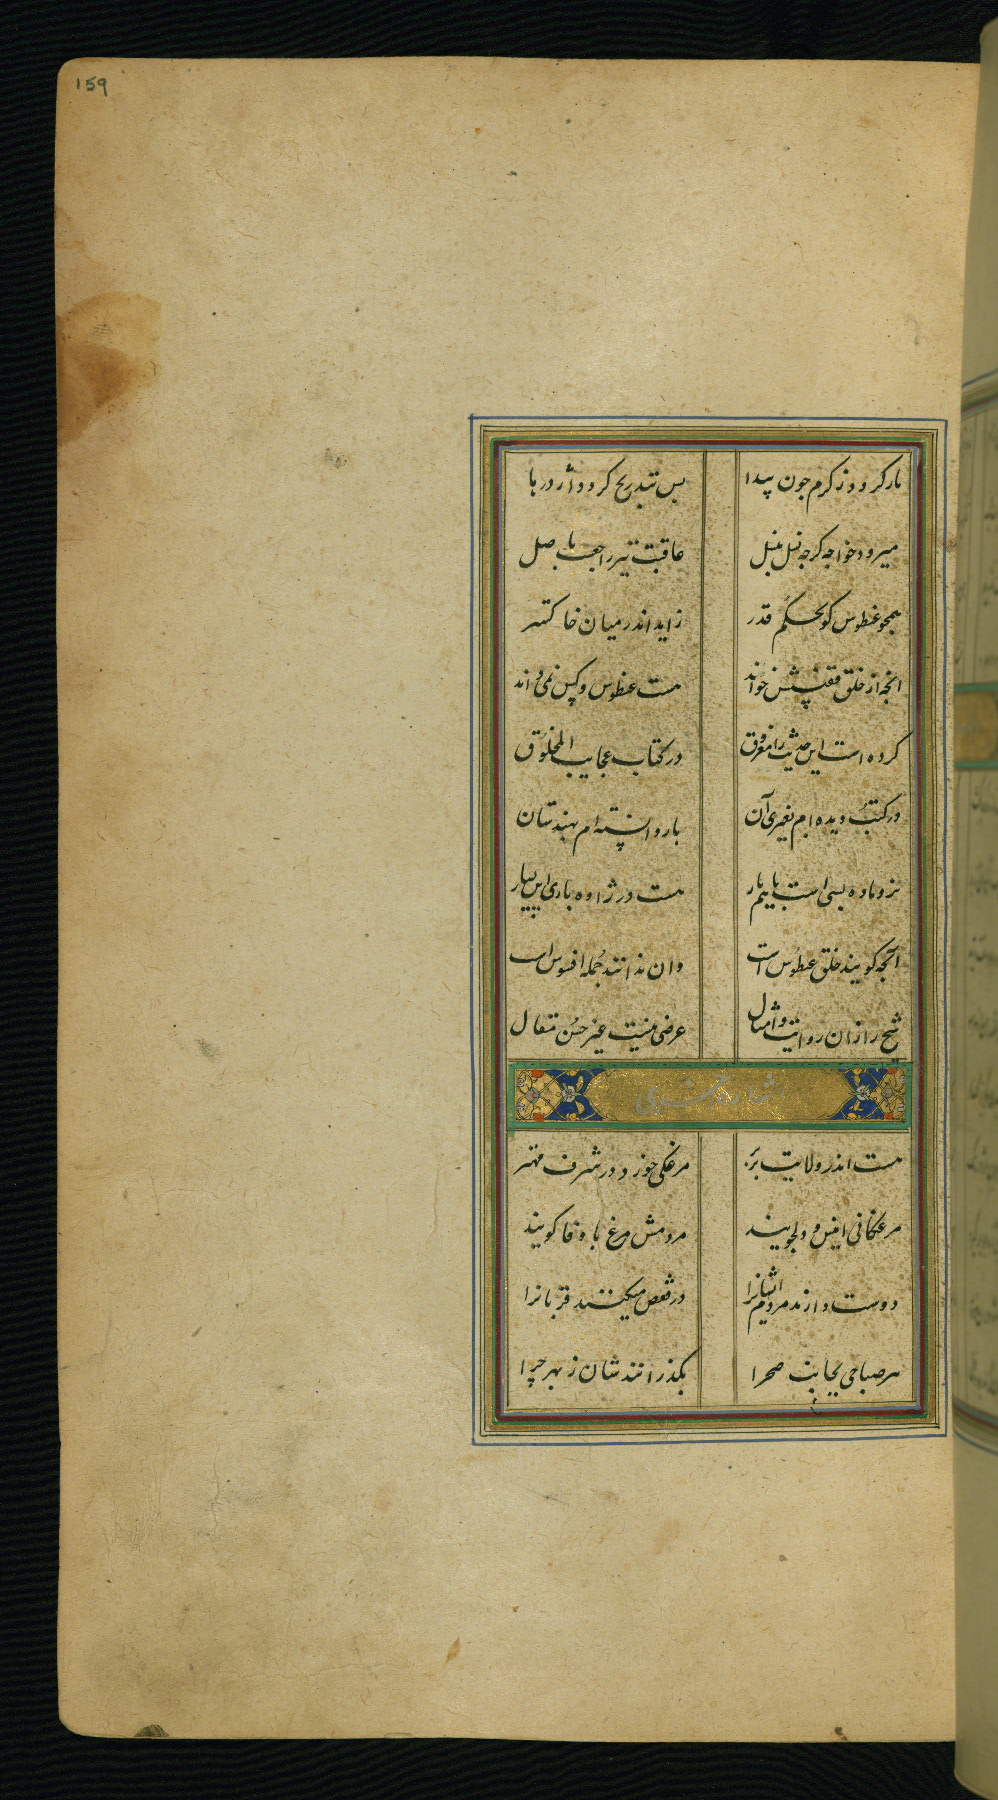 159
مار کردد ز کرم جون پیدا
بس بتدریج کردد اژدرها
میرود خواجه کرجه نسل بنسل
عاقبت تیر راجعت باصل
همجو غطوس کو بحکم قدر
زاید اندر میان خاکستر
انجه از خلق ققنسش خواند
هست غطوس وکس نمی داند
کرده است این حدیث را مغروق
در کتاب عجایب المخلوق
در کتب دیده ام بغیری آن
باز دانسته ام بهندستان
نر و ماده بسی است باهم یار
هست در ژاوه بادی این بسیار
آنجه کویند خلق غطوس است
وان ندانند جمله افسوس است
شیخ را زان روایت و امثال
غرضی نیست غیر حسن مقال
هست اندر ولایت بربر
مرغکی خورد در شرف مهتر
مرغکانی انیس و دلجویند
مردمش مرغ با وفا کویند
دوست دارند مردم ایشانرا
در قفص میکنند قربانرا
هر صباحی بجانب صحرا
بکذرانندشان ز بهر چرا